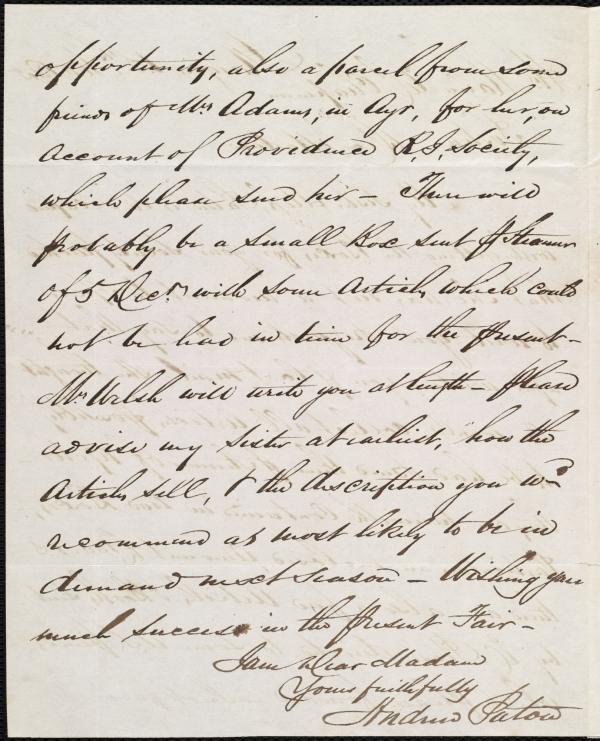 opportunity, also a parcel from some
friends of Mrs Adams, in Ayr, for her, on
account of Providence R.I. Society,
which please send her – There will
probably be a small Box sent pr Steamer
of 5 Decr. with some Articles which could
not be had in time for the present –
Mrs Welsh will write you at length – please
advise my sister at earliest, how the
Articles sell, & the description you wd
recommend as most likely to be in
demand next season – Wishing you
much success in the present Fair –
I am Dear Madam
Yours faithfully
Andrew Paton